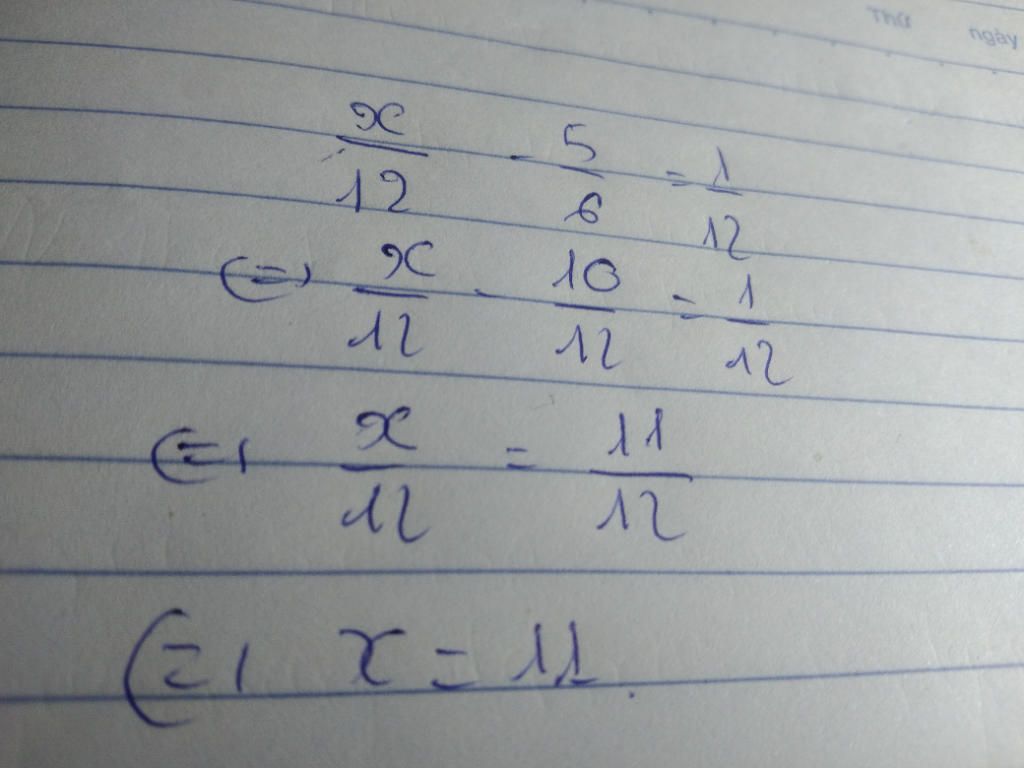 Thứ ngày
x/12 - 5/6 = 1/12
(=) x/12 - 10/12 = 1/12
(=) x/12 = 11/12
(=) x = 11.